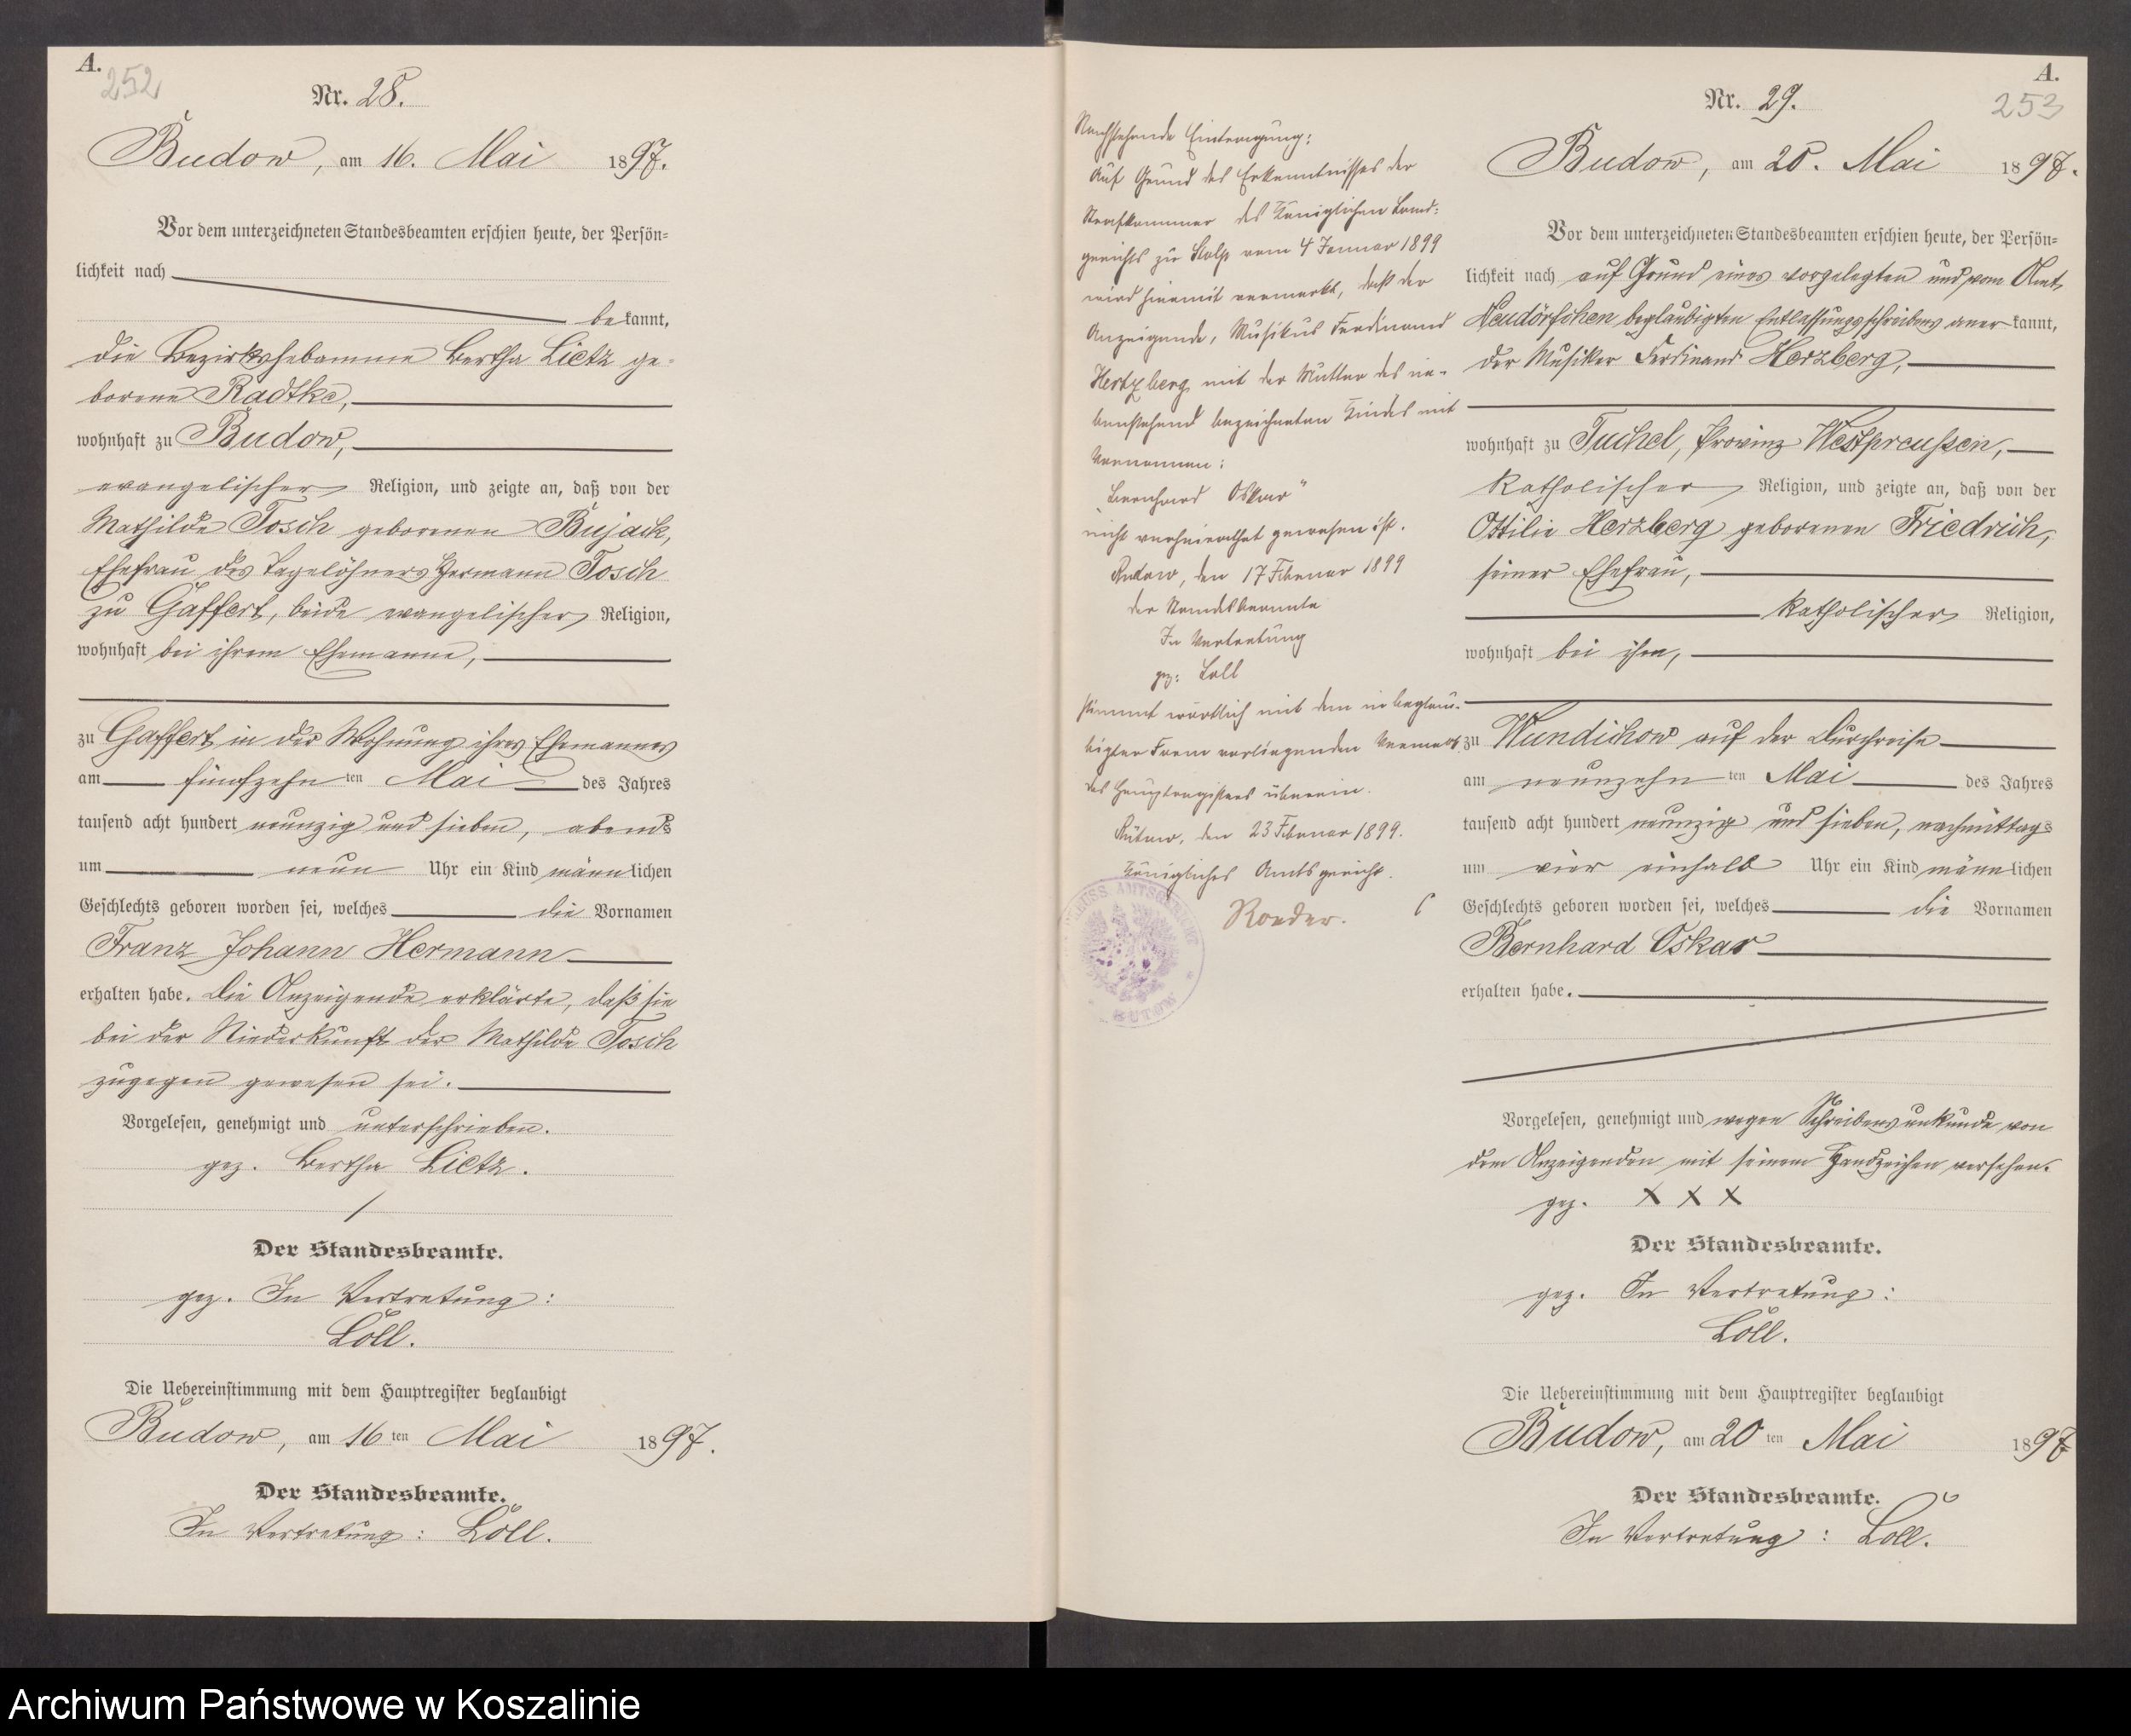 A.
252
Nr. 28.
Budow, am 16. Mai 1897.
Vor dem unterzeichneten Standesbeamten erschien heute, der Persön=
lichkeit nach
bekannt,
die Bezirkshebamme Bertha Lietz ge=
borene Radtke,
wohnhaft zu Budow,
evangelischer Religion, und zeigte an, daß von der
Mathilde Tosch geborenen Bujack,
Ehefrau des Tagelöhners Hermann Tosch
zu Gaffert, beide evangelischer Religion,
wohnhaft bei ihrem Ehemanne,
zu Gaffert in der Wohnung ihres Ehemannes
am fünfzehnten Mai des Jahres
tausend acht hundert neunzig und sieben, abends
um neun Uhr ein Kind männlichen
Geschlechts geboren worden sei, welches die Vornamen
Franz Johann Hermann
erhalten habe. Die Anzeigende erklärte, daß sie
bei der Niederkunft der Mathilde Tosch
zugegen gewesen sei.
Vorgelesen, genehmigt und unterschrieben.
gez. Bertha Lietz.
Der Standesbeamte.
gez. In Vertretung:
Löll.
Die Uebereinstimmung mit dem Hauptregister beglaubigt
Budow, am 16ten Mai 1897.
Der Standesbeamte.
In Vertretung: Löll.
Nachstehende Eintragung:
Auf Grund des Erkenntnisses der
Strafkammer des Königlichen Land=
gerichts zu Stolp vom 4 Januar 1899
wird hiermit vermerkt, daß der
Anzeigende, Musikus Ferdinand
Hertzberg mit der Mutter des ne=
benstehend bezeichneten Kindes mit
Vornamen:
"Bernhard Oskar"
nicht verheirathet gewesen ist.
Budow, den 17 Februar 1899
der Standesbeamte
In Vertretung
gez: Löll
stimmt wörtlich mit dem in beglau=
bigter Form vorliegenden Vermerk
des Hauptregisters überein.
Bütow, den 23 Februar 1899.
Königliches Amtsgericht.
Roeder.
PREUSS. AMTSGERICHT
BÜTOW
A.
253
Nr. 29.
Budow, am 20. Mai 1897.
Vor dem unterzeichneten Standesbeamten erschien heute, der Persön=
lichkeit nach auf Grund eines vorgelegten und vom Amt
Neudörfchen beglaubigten Entlassungsschreibens anerkannt,
der Musiker Ferdinand Herzberg,
wohnhaft zu Tuchel, Provinz Westpreussen,
katholischer Religion, und zeigte an, daß von der
Ottilie Herzberg geborenen Friedrich,
seiner Ehefrau,
katholischer Religion,
wohnhaft bei ihm,
zu Wundichow auf der Durchreise
am neunzehnten Mai des Jahres
tausend acht hundert neunzig und sieben, nachmittags
um vier einhalb Uhr ein Kind männlichen
Geschlechts geboren worden sei, welches die Vornamen
Bernhard Oskar
erhalten habe.
Vorgelesen, genehmigt und wegen Schreibensunkunde von
dem Anzeigenden mit seinem Handzeichen versehen.
gez. X X X
Der Standesbeamte.
gez. In Vertretung:
Löll.
Die Uebereinstimmung mit dem Hauptregister beglaubigt
Budow, am 20ten Mai 1897
Der Standesbeamte.
In Vertretung: Löll.
Archiwum Państwowe w Koszalinie